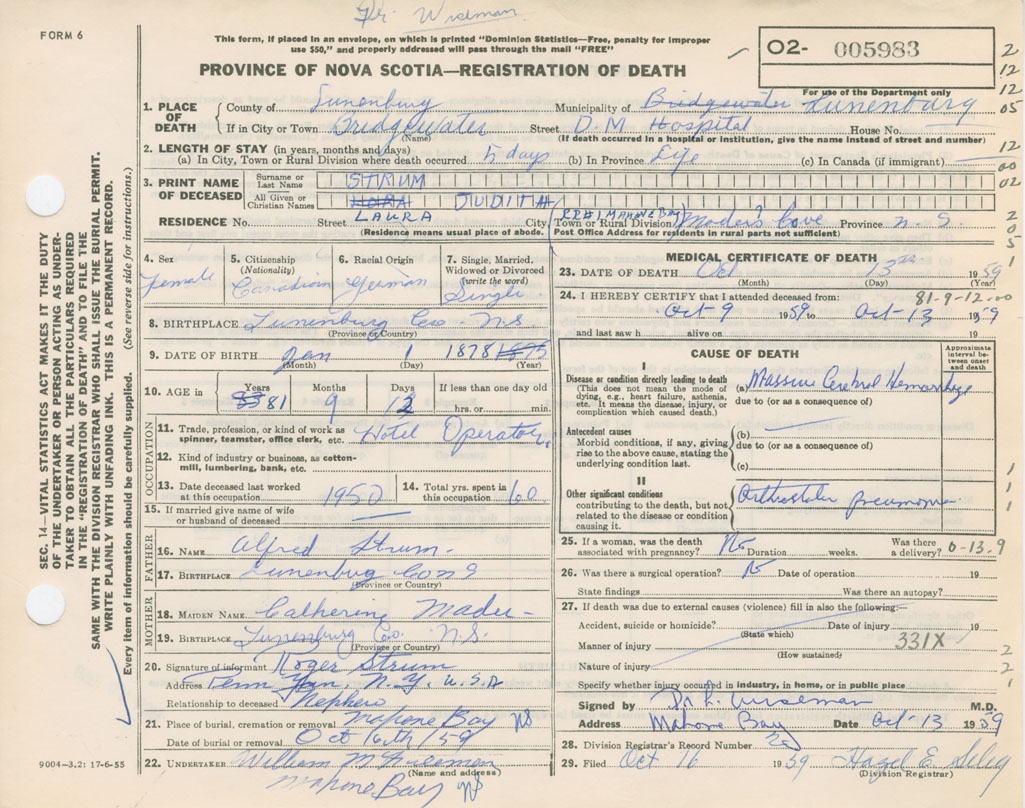 Dr. Wiseman
FORM 6
This form, if placed in an envelope, on which is printed "Dominion Statistics—Free, penalty for improper
use $50," and properly addressed will pass through the mail "FREE"
O2- 005983
PROVINCE OF NOVA SCOTIA—REGISTRATION OF DEATH
For use of the Department only
2
12
12
05
12
00
02
2
05
1
1. PLACE OF DEATH County of Lunenburg Municipality of Bridgewater Lunenburg
If in City or Town Bridgewater Street D.M. Hospital House No.
(Name) (If death occurred in a hospital or institution, give the name instead of street and number)
2. LENGTH OF STAY (in years, months and days)
(a) In City, Town or Rural Division where death occurred 5 days (b) In Province Life (c) In Canada (if immigrant)
3. PRINT NAME OF DECEASED Surname or Last Name STRUM
All Given or Christian Names NORA JUDITH
LAURA
RR#1 MAHONE BAY
RESIDENCE No. Street City, Town or Rural Division Mader's Cove Province N.S.
(Residence means usual place of abode. Post Office Address for residents in rural parts not sufficient)
4. Sex Female
5. Citizenship (Nationality) Canadian
6. Racial Origin German
7. Single, Married, Widowed or Divorced (write the word) Single
8. BIRTHPLACE Lunenburg Co. N.S.
(Province or Country)
9. DATE OF BIRTH Jan 1 1878 1875
(Month) (Day) (Year)
10. AGE in Years 81 Months 9 Days 12 If less than one day old hrs. or min.
OCCUPATION
11. Trade, profession, or kind of work as spinner, teamster, office clerk, etc. Hotel Operator
12. Kind of industry or business, as cotton-mill, lumbering, bank, etc.
13. Date deceased last worked at this occupation 1950 14. Total yrs. spent in this occupation 60
15. If married give name of wife or husband of deceased
FATHER
16. NAME Alfred Strum
17. BIRTHPLACE Lunenburg Co NS
(Province or Country)
MOTHER
18. MAIDEN NAME Catherine Mader
19. BIRTHPLACE Lunenburg Co. N.S.
(Province or Country)
20. Signature of informant Roger Strum
Address Penn Yan, N.Y. U.S.A
Relationship to deceased Nephew
21. Place of burial, cremation or removal Mahone Bay NS
Date of burial or removal Oct 16th/59
22. UNDERTAKER William
(Name and address)
Mahone Bay NS
9004—3.2: 17-6-55
SEC. 14—VITAL STATISTICS ACT MAKES IT THE DUTY
OF THE UNDERTAKER OR PERSON ACTING AS UNDER-
TAKER TO OBTAIN ALL THE PARTICULARS REQUIRED
IN THE "REGISTRATION OF DEATH" AND TO FILE THE
SAME WITH THE DIVISION REGISTRAR WHO SHALL ISSUE THE BURIAL PERMIT.
WRITE PLAINLY WITH UNFADING INK. THIS IS A PERMANENT RECORD.
Every item of information should be carefully supplied. (See reverse side for instructions.)
MEDICAL CERTIFICATE OF DEATH
23. DATE OF DEATH Oct 13 1959
(Month) (Day) (Year)
24. I HEREBY CERTIFY that I attended deceased from: 81-9-12.00
Oct-9 1959 to Oct-13 1959
and last saw h alive on 19
CAUSE OF DEATH
Approximate interval between onset and death
I
Disease or condition directly leading to death (a) Massive Cerebral Hemorrhage
(This does not mean the mode of dying, e.g., heart failure, asthenia, etc. It means the disease, injury, or complication which caused death.)
due to (or as a consequence of)
Antecedent causes (b)
Morbid conditions, if any, giving rise to the above cause, stating the underlying condition last.
due to (or as a consequence of)
(c)
II
Other significant conditions contributing to the death, but not related to the disease or condition causing it.
pneumonia
1
1
1
25. If a woman, was the death associated with pregnancy? No Duration weeks. Was there a delivery? 0-13.9
26. Was there a surgical operation? Date of operation 19
State findings Was there an autopsy?
27. If death was due to external causes (violence) fill in also the following:
Accident, suicide or homicide? Date of injury 19
(State which)
Manner of injury 331X
(How sustained)
Nature of injury
2
2
1
Specify whether injury occurred in industry, in home, or in public place
Signed by Dr L. Wiseman M.D.
Address Mahone Bay Date Oct-13 1959
28. Division Registrar's Record Number
29. Filed Oct 16 1959 Hazel E
(Division Registrar)